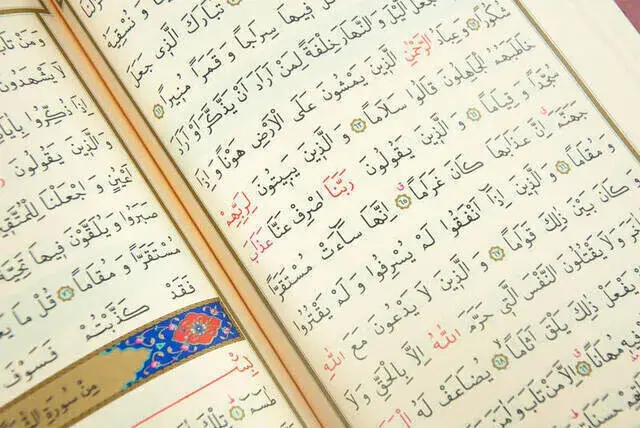 تَبَارَكَ الَّذِى جَعَلَ
فِيهَا سِرَاجًا وَ قَمَرًا مُنِيرًا
جَعَلَ الَّيْلَ وَ النَّهَارَ خِلْفَةً لِمَنْ اَرَادَ اَنْ يَذَّكَّرَ اَوْ اَرَادَ
شُكُورًا ۝ وَ عِبَادُ الرَّحْمٰنِ الَّذِينَ يَمْشُونَ عَلَى الْاَرْضِ هَوْنًا وَ اِذَا
خَاطَبَهُمُ الْجَاهِلُونَ قَالُوا سَلَامًا ۝ وَ الَّذِينَ يَبِيتُونَ لِرَبِّهِمْ
سُجَّدًا وَ قِيَامًا ۝ وَ الَّذِينَ يَقُولُونَ رَبَّنَا اصْرِفْ عَنَّا عَذَابَ
جَهَنَّمَ اِنَّ عَذَابَهَا كَانَ غَرَامًا ۝ اِنَّهَا سَآءَتْ مُسْتَقَرًّا
وَ مُقَامًا ۝ وَ الَّذِينَ اِذَآ اَنْفَقُوا لَمْ يُسْرِفُوا وَ لَمْ يَقْتُرُوا
وَ كَانَ بَيْنَ ذٰلِكَ قَوَامًا ۝ وَ الَّذِينَ لَا يَدْعُونَ مَعَ اللّٰهِ
وَ لَا يَقْتُلُونَ النَّفْسَ الَّتِى حَرَّمَ اللّٰهُ اِلَّا بِالْحَقِّ وَ لَا
يَفْعَلْ ذٰلِكَ يَلْقَ اَثَامًا ۝ يُضَاعَفْ لَهُ
فِيهِ مُهَانًا ۝ اِلَّا مَنْ تَابَ وَ اٰمَنَ
وَ مَنْ تَابَ
لَا يَشْهَدُونَ
اِذَا ذُكِّرُوا
وَ الَّذِينَ يَقُولُونَ
اَعْيُنٍ وَ اجْعَلْنَا لِلْمُتَّقِينَ
صَبَرُوا وَ يُلَقَّوْنَ فِيهَا تَحِيَّةً
مُسْتَقَرًّا وَ مُقَامًا ۝ قُلْ مَا
فَقَدْ كَذَّبْتُمْ فَسَوْفَ
مِنْ سُورَةِ
طٰسٓمٓ ۝ تِلْكَ